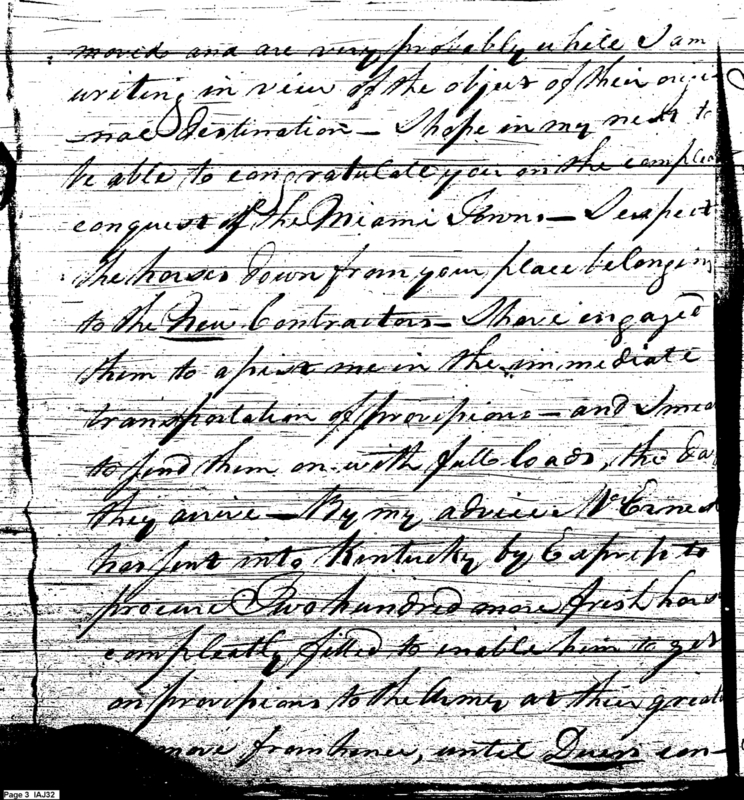 moved and are very probably while I am
writing in view of the object of their origi
nal destination — I hope in my next to
be able to congratulate you on the compleat
conquest of the Miami Towns — I expect
the horses down from your place belonging
to the New Contractors — I have engaged
them to assist me in the immediate
transportation of provisions — and I mean
to send them on with full loads, the day
they arrive — By my advice Mr Ernest
has sent into Kentucky by Express to
procure Two hundred more fresh horses
compleatly fitted to enable him to get
on provisions to the Army at their great
move from hence, until Duers con-
Page 3 IAJ32